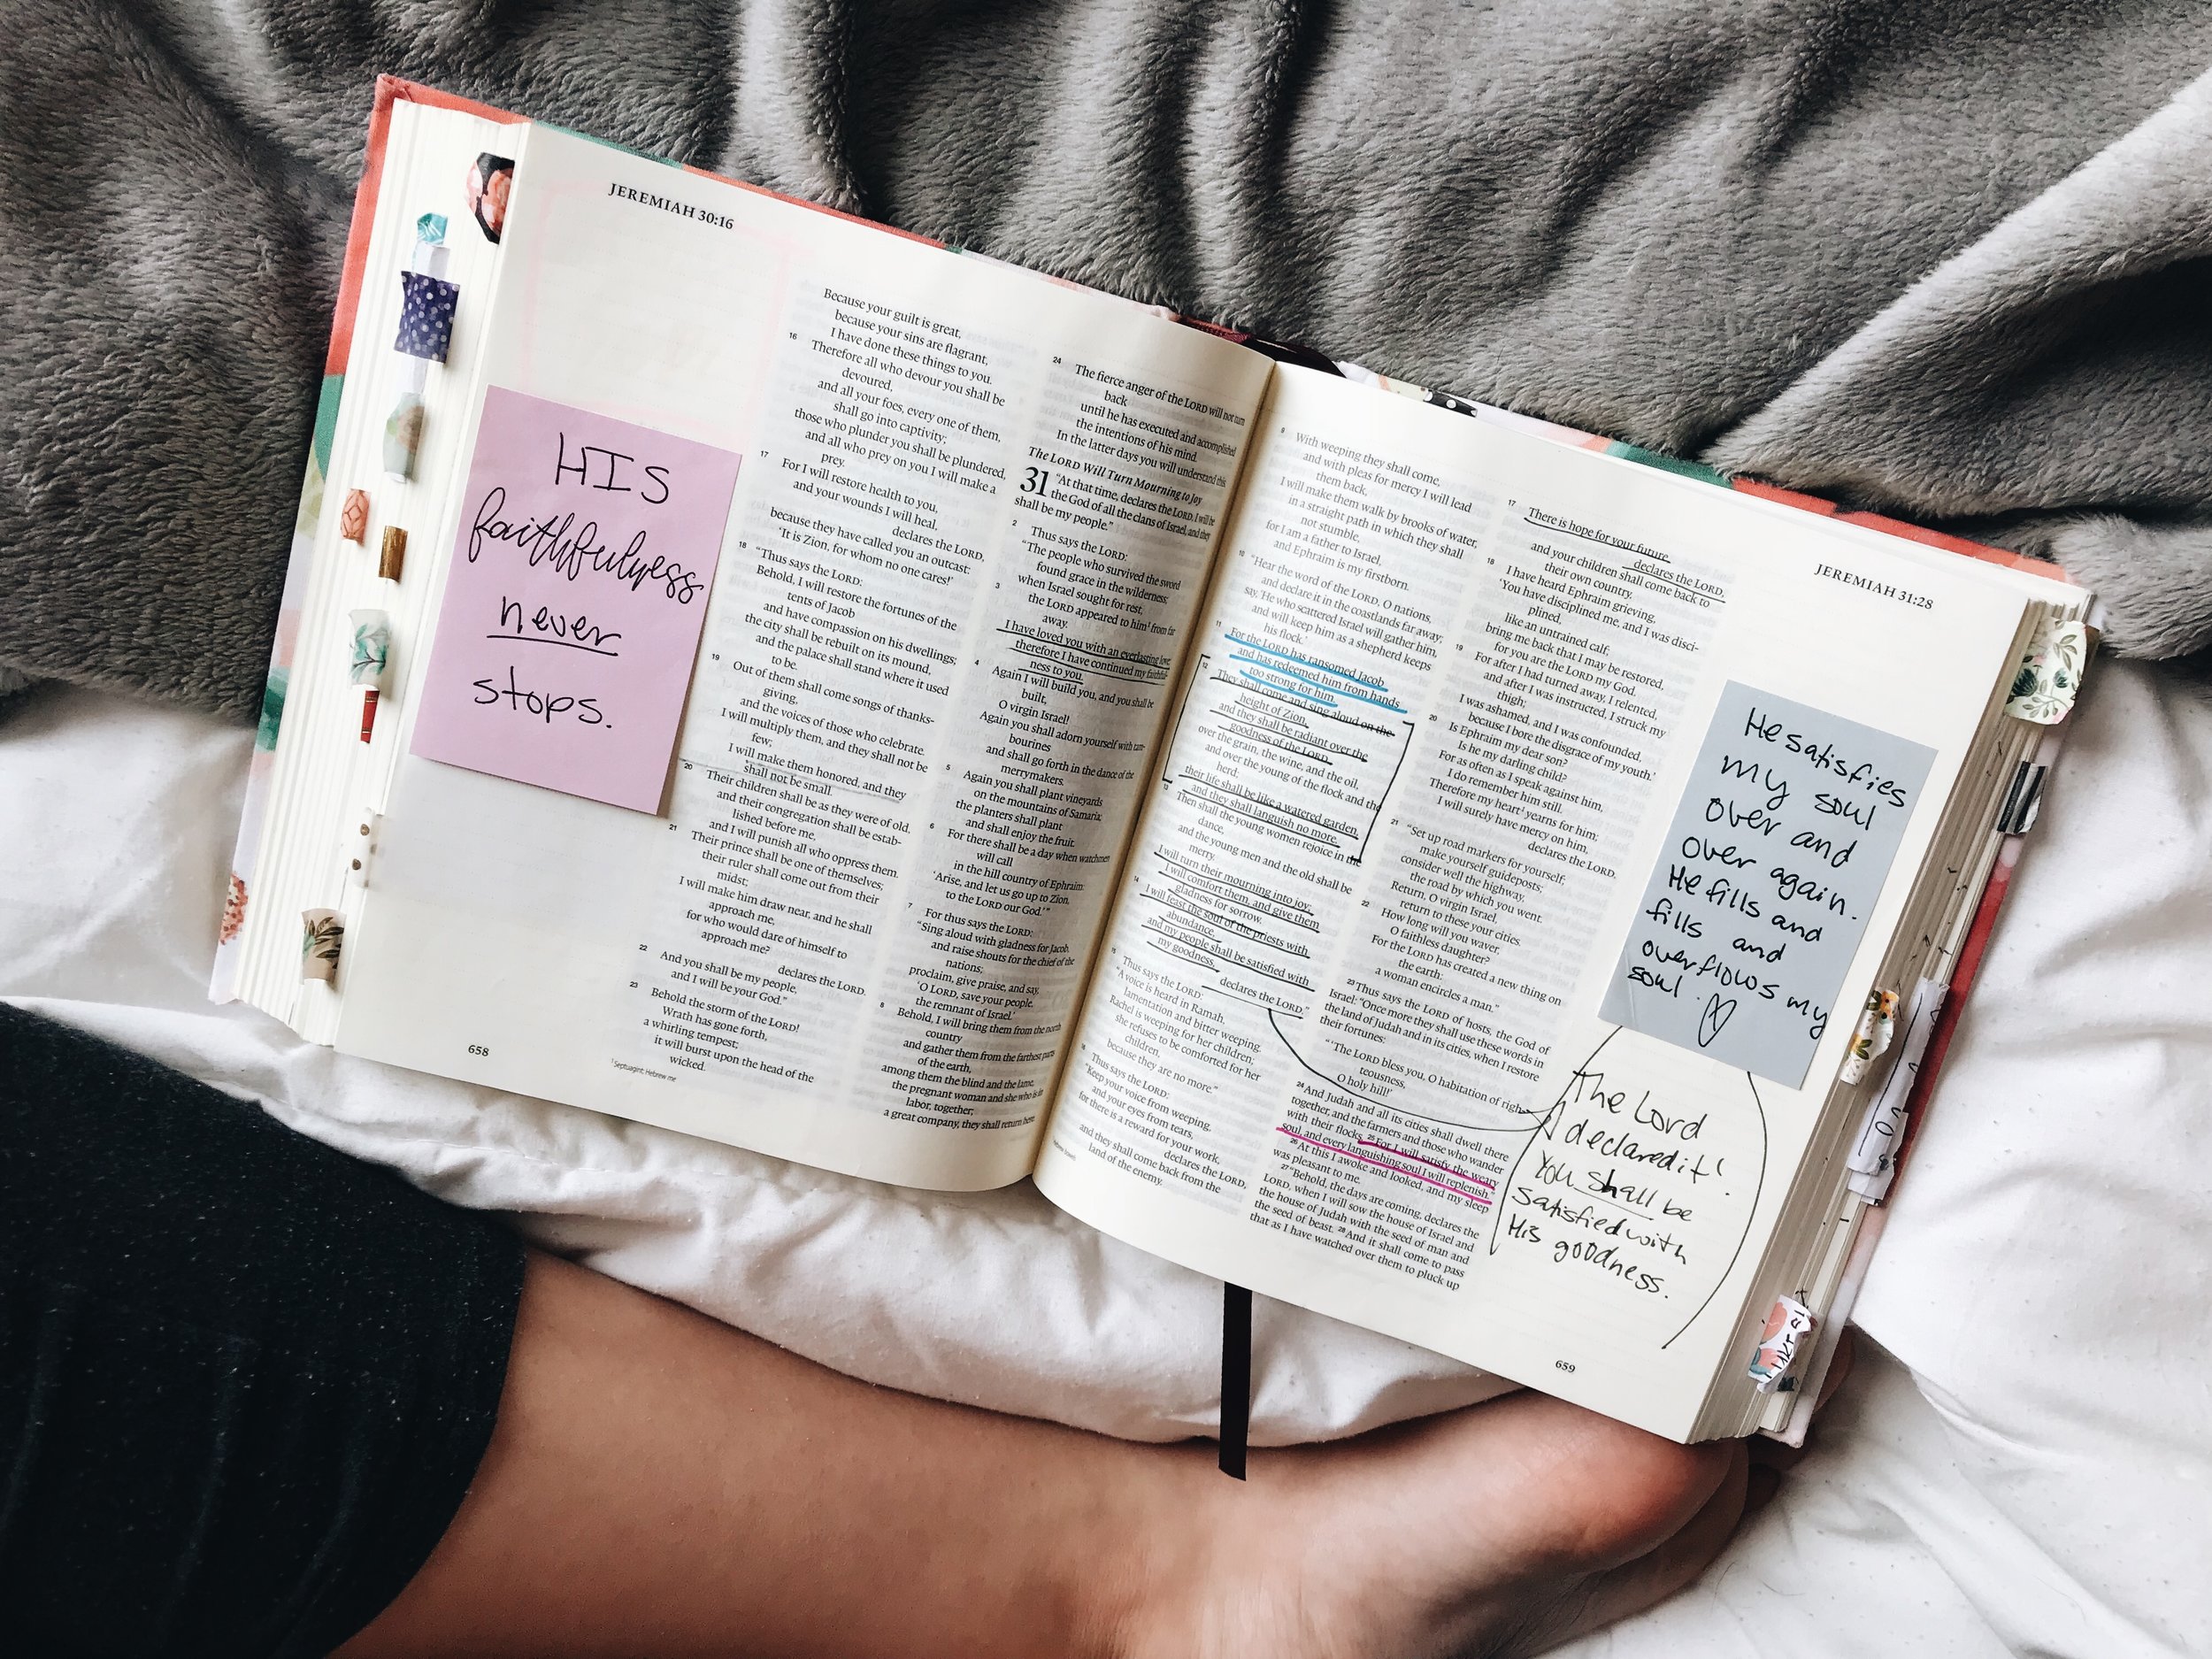 JEREMIAH 30:16
HIS
faithfulness
never
stops.
Because your guilt is great,
because your sins are flagrant,
I have done these things to you.
16 Therefore all who devour you shall be
devoured,
and all your foes, every one of them,
shall go into captivity;
those who plunder you shall be plundered,
and all who prey on you I will make a
prey.
17 For I will restore health to you,
and your wounds I will heal,
declares the LORD,
because they have called you an outcast:
'It is Zion, for whom no one cares!'
18 "Thus says the LORD:
Behold, I will restore the fortunes of the
tents of Jacob
and have compassion on his dwellings;
the city shall be rebuilt on its mound,
and the palace shall stand where it used
to be.
19 Out of them shall come songs of thanks-
giving,
and the voices of those who celebrate.
I will multiply them, and they shall not be
few;
I will make them honored, and they
shall not be small.
20 Their children shall be as they were of old,
and their congregation shall be estab-
lished before me,
and I will punish all who oppress them.
21 Their prince shall be one of themselves;
their ruler shall come out from their
midst;
I will make him draw near, and he shall
approach me,
for who would dare of himself to
approach me?
declares the LORD.
22 And you shall be my people,
and I will be your God."
23 Behold the storm of the LORD!
Wrath has gone forth,
a whirling tempest;
it will burst upon the head of the
wicked.
1 Septuagint; Hebrew me
658
24 The fierce anger of the LORD will not turn
back
until he has executed and accomplished
the intentions of his mind.
In the latter days you will understand this.
The LORD Will Turn Mourning to Joy
31 "At that time, declares the LORD, I will be
the God of all the clans of Israel, and they
shall be my people."
2 Thus says the LORD:
"The people who survived the sword
found grace in the wilderness;
when Israel sought for rest,
3 the LORD appeared to him from far
away.
I have loved you with an everlasting love;
therefore I have continued my faithful-
ness to you.
4 Again I will build you, and you shall be
built,
O virgin Israel!
Again you shall adorn yourself with tam-
bourines
and shall go forth in the dance of the
merrymakers.
5 Again you shall plant vineyards
on the mountains of Samaria;
the planters shall plant
and shall enjoy the fruit.
6 For there shall be a day when watchmen
will call
in the hill country of Ephraim:
'Arise, and let us go up to Zion,
to the LORD our God.'"
7 For thus says the LORD:
"Sing aloud with gladness for Jacob,
and raise shouts for the chief of the
nations;
proclaim, give praise, and say,
'O LORD, save your people,
the remnant of Israel.'
8 Behold, I will bring them from the north
country
and gather them from the farthest parts
of the earth,
among them the blind and the lame,
the pregnant woman and she who is in
labor, together;
a great company, they shall return here.
9 With weeping they shall come,
and with pleas for mercy I will lead
them back,
I will make them walk by brooks of water,
in a straight path in which they shall
not stumble,
for I am a father to Israel,
and Ephraim is my firstborn.
10 "Hear the word of the LORD, O nations,
and declare it in the coastlands far away;
say, 'He who scattered Israel will gather him,
and will keep him as a shepherd keeps
his flock.'
11 For the LORD has ransomed Jacob
and has redeemed him from hands
too strong for him.
12 They shall come and sing aloud on the
height of Zion,
and they shall be radiant over the
goodness of the LORD,
over the grain, the wine, and the oil,
and over the young of the flock and the
herd;
their life shall be like a watered garden,
and they shall languish no more.
13 Then shall the young women rejoice in the
dance,
and the young men and the old shall be
merry.
I will turn their mourning into joy;
I will comfort them, and give them
gladness for sorrow.
14 I will feast the soul of the priests with
abundance,
and my people shall be satisfied with
my goodness,
declares the LORD."
15 Thus says the LORD:
"A voice is heard in Ramah,
lamentation and bitter weeping.
Rachel is weeping for her children;
she refuses to be comforted for her
children,
because they are no more."
16 Thus says the LORD:
"Keep your voice from weeping,
and your eyes from tears,
for there is a reward for your work,
declares the LORD,
and they shall come back from the
land of the enemy.
17 There is hope for your future,
declares the LORD,
and your children shall come back to
their own country.
18 I have heard Ephraim grieving,
'You have disciplined me, and I was disci-
plined,
like an untrained calf;
bring me back that I may be restored,
for you are the LORD my God.
19 For after I had turned away, I relented,
and after I was instructed, I struck my
thigh;
I was ashamed, and I was confounded,
because I bore the disgrace of my youth.'
20 Is Ephraim my dear son?
Is he my darling child?
For as often as I speak against him,
I do remember him still.
Therefore my heart yearns for him;
I will surely have mercy on him,
declares the LORD.
21 "Set up road markers for yourself;
make yourself guideposts;
consider well the highway,
the road by which you went.
Return, O virgin Israel,
return to these your cities.
22 How long will you waver,
O faithless daughter?
For the LORD has created a new thing on
the earth:
a woman encircles a man."
23 Thus says the LORD of hosts, the God of
Israel: "Once more they shall use these words in
the land of Judah and in its cities, when I restore
their fortunes:
"'The LORD bless you, O habitation of righ-
teousness,
O holy hill!'
24 And Judah and all its cities shall dwell there
together, and the farmers and those who wander
with their flocks. 25 For I will satisfy the weary
soul, and every languishing soul I will replenish."
26 At this I awoke and looked, and my sleep
was pleasant to me.
27 "Behold, the days are coming, declares the
LORD, when I will sow the house of Israel and
the house of Judah with the seed of man and
the seed of beast. 28 And it shall come to pass
that as I have watched over them to pluck up
JEREMIAH 31:28
He satisfies
my soul
over and
over again.
He fills and
fills and
overflows my
soul.
The Lord
declared it!
You shall be
satisfied with
His goodness.
659